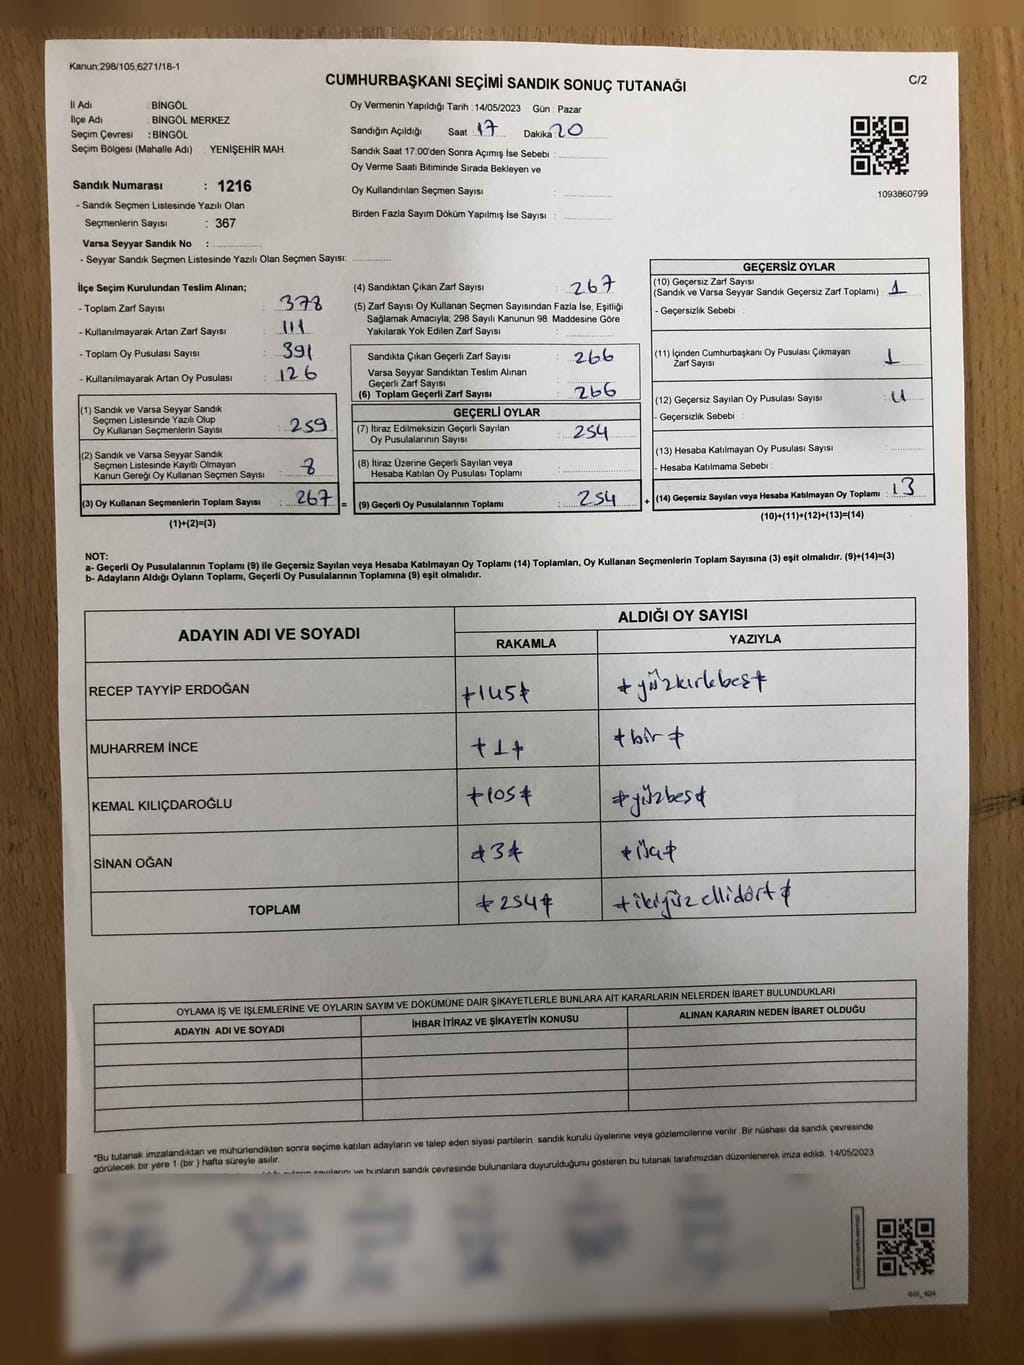 Kanun:298/105,6271/18-1
CUMHURBAŞKANI SEÇİMİ SANDIK SONUÇ TUTANAĞI
C/2
İl Adı : BİNGÖL
İlçe Adı : BİNGÖL MERKEZ
Seçim Çevresi : BİNGÖL
Seçim Bölgesi (Mahalle Adı) : YENİŞEHİR MAH.
Sandık Numarası : 1216
- Sandık Seçmen Listesinde Yazılı Olan
Seçmenlerin Sayısı : 367
Varsa Seyyar Sandık No :
- Seyyar Sandık Seçmen Listesinde Yazılı Olan Seçmen Sayısı:
Oy Vermenin Yapıldığı Tarih : 14/05/2023 Gün : Pazar
Sandığın Açıldığı Saat : 17 Dakika : 20
Sandık Saat 17:00'den Sonra Açımış İse Sebebi :
Oy Verme Saati Bitiminde Sırada Bekleyen ve
Oy Kullandırılan Seçmen Sayısı :
Birden Fazla Sayım Döküm Yapılmış İse Sayısı :
1093860799
İlçe Seçim Kurulundan Teslim Alınan;
- Toplam Zarf Sayısı : 378
- Kullanılmayarak Artan Zarf Sayısı : 111
- Toplam Oy Pusulası Sayısı : 391
- Kullanılmayarak Artan Oy Pusulası : 126
(1) Sandık ve Varsa Seyyar Sandık
Seçmen Listesinde Yazılı Olup
Oy Kullanan Seçmenlerin Sayısı : 259
(2) Sandık ve Varsa Seyyar Sandık
Seçmen Listesinde Kayıtlı Olmayan
Kanun Gereği Oy Kullanan Seçmen Sayısı : 8
(3) Oy Kullanan Seçmenlerin Toplam Sayısı : 267 =
(1)+(2)=(3)
(4) Sandıktan Çıkan Zarf Sayısı : 267
(5) Zarf Sayısı Oy Kullanan Seçmen Sayısından Fazla İse, Eşitliği
Sağlamak Amacıyla; 298 Sayılı Kanunun 98. Maddesine Göre
Yakılarak Yok Edilen Zarf Sayısı :
Sandıkta Çıkan Geçerli Zarf Sayısı : 266
Varsa Seyyar Sandıktan Teslim Alınan
Geçerli Zarf Sayısı :
(6) Toplam Geçerli Zarf Sayısı : 266
GEÇERLİ OYLAR
(7) İtiraz Edilmeksizin Geçerli Sayılan
Oy Pusulalarının Sayısı : 254
(8) İtiraz Üzerine Geçerli Sayılan veya
Hesaba Katılan Oy Pusulası Toplamı :
(9) Geçerli Oy Pusulalarının Toplamı : 254 +
GEÇERSİZ OYLAR
(10) Geçersiz Zarf Sayısı
(Sandık ve Varsa Seyyar Sandık Geçersiz Zarf Toplamı) : 1
- Geçersizlik Sebebi :
(11) İçinden Cumhurbaşkanı Oy Pusulası Çıkmayan
Zarf Sayısı : 1
(12) Geçersiz Sayılan Oy Pusulası Sayısı : 11
- Geçersizlik Sebebi :
(13) Hesaba Katılmayan Oy Pusulası Sayısı :
- Hesaba Katılmama Sebebi :
(14) Geçersiz Sayılan veya Hesaba Katılmayan Oy Toplamı : 13
(10)+(11)+(12)+(13)=(14)
NOT:
a- Geçerli Oy Pusulalarının Toplamı (9) ile Geçersiz Sayılan veya Hesaba Katılmayan Oy Toplamı (14) Toplamları, Oy Kullanan Seçmenlerin Toplam Sayısına (3) eşit olmalıdır. (9)+(14)=(3)
b- Adayların Aldığı Oyların Toplamı, Geçerli Oy Pusulalarının Toplamına (9) eşit olmalıdır.
ADAYIN ADI VE SOYADI
ALDIĞI OY SAYISI
RAKAMLA YAZIYLA
RECEP TAYYİP ERDOĞAN 145 yüzkırkbeş
MUHARREM İNCE 1 bir
KEMAL KILIÇDAROĞLU 105 yüzbeş
SİNAN OĞAN 3 üç
TOPLAM 254 ikiyüz ellidört
OYLAMA İŞ VE İŞLEMLERİNE VE OYLARIN SAYIM VE DÖKÜMÜNE DAİR ŞİKAYETLERLE BUNLARA AİT KARARLARIN NELERDEN İBARET BULUNDUKLARI
ADAYIN ADI VE SOYADI İHBAR İTİRAZ VE ŞİKAYETİN KONUSU ALINAN KARARIN NEDEN İBARET OLDUĞU
*Bu tutanak imzalandıktan ve mühürlendikten sonra seçime katılan adayların ve talep eden siyasi partilerin sandık kurulu üyelerine veya gözlemcilerine verilir. Bir nüshası da sandık çevresinde
görülecek bir yere 1 (bir ) hafta süreyle asılır.
sayılarını ve bunların sandık çevresinde bulunanlara duyurulduğunu gösteren bu tutanak tarafımızdan düzenlenerek imza edildi. 14/05/2023